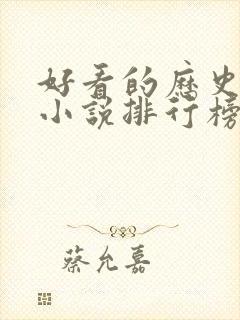 好看的歷史
小說排行榜
蔡允嘉